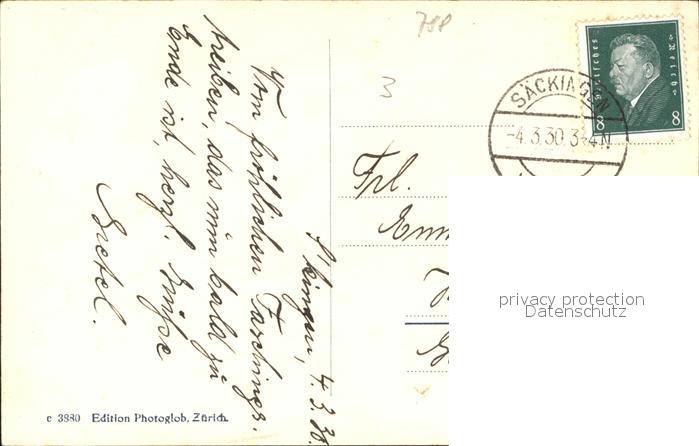 788
3
Deutsches Reich
8 8
SÄCKINGEN
-4.3.30.3-4N
S'kingen, 4.3.30.
Vom fröhlichen Faschings-
treiben, das nun bald zu
Ende ist, herzl. Grüße
Gretel.
Frl.
privacy protection
Datenschutz
c 3880 Edition Photoglob, Zürich.